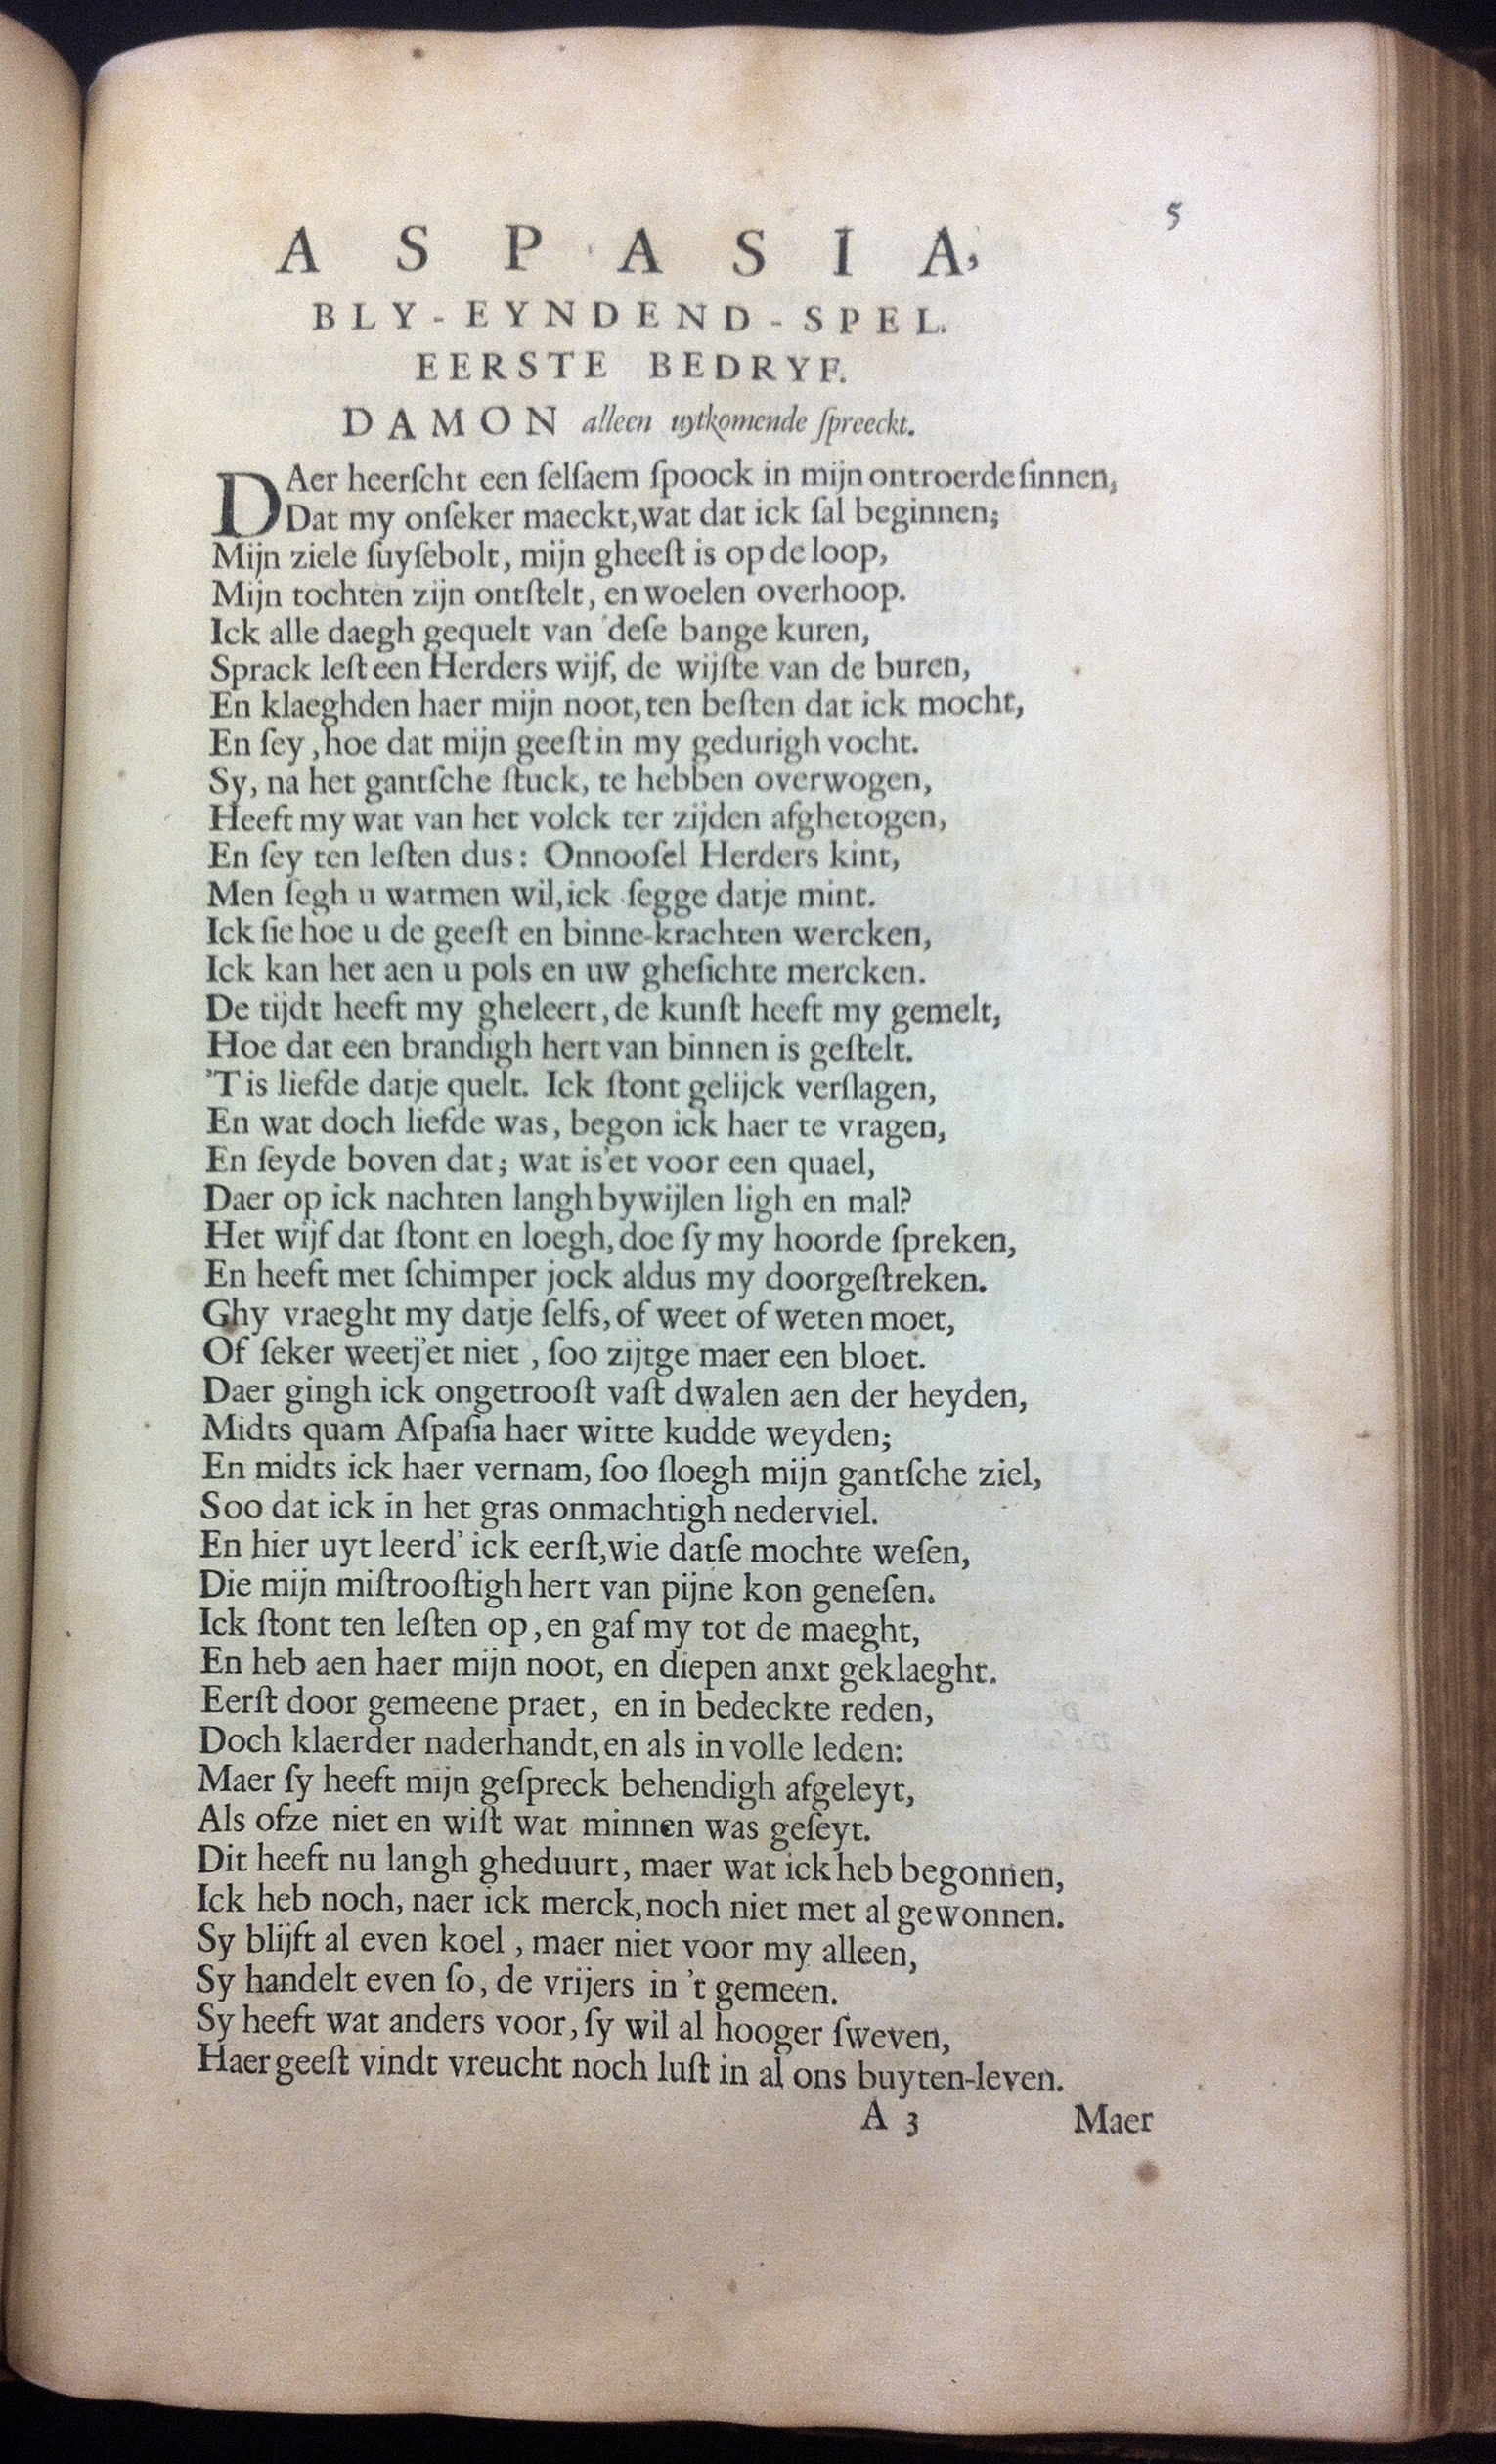 5
ASPASIA,
BLY-EYNDEND-SPEL.
EERSTE BEDRYF.
DAMON alleen uytkomende ſpreeckt.
DAer heerſcht een ſelſaem ſpoock in mijn ontroerde ſinnen,
Dat my onſeker maeckt, wat dat ick ſal beginnen;
Mijn ziele ſuyſebolt, mijn gheeſt is op de loop,
Mijn tochten zijn ontſtelt, en woelen overhoop.
Ick alle daegh gequelt van deſe bange kuren,
Sprack leſt een Herders wijf, de wijſte van de buren,
En klaeghden haer mijn noot, ten beſten dat ick mocht,
En ſey, hoe dat mijn geeſt in my gedurigh vocht.
Sy, na het gantſche ſtuck, te hebben overwogen,
Heeft my wat van het volck ter zijden afghetogen,
En ſey ten leſten dus: Onnooſel Herders kint,
Men ſegh u watmen wil, ick ſegge datje mint.
Ick ſie hoe u de geeſt en binne-krachten wercken,
Ick kan het aen u pols en uw gheſichte mercken.
De tijdt heeft my gheleert, de kunſt heeft my gemelt,
Hoe dat een brandigh hert van binnen is geſtelt.
'T is liefde datje quelt. Ick ſtont gelijck verſlagen,
En wat doch liefde was, begon ick haer te vragen,
En ſeyde boven dat; wat is'et voor een quael,
Daer op ick nachten langh bywijlen ligh en mal?
Het wijf dat ſtont en loegh, doe ſy my hoorde ſpreken,
En heeft met ſchimper jock aldus my doorgeſtreken.
Ghy vraeght my datje ſelfs, of weet of weten moet,
Of ſeker weetj'et niet, ſoo zijtge maer een bloet.
Daer gingh ick ongetrooſt vaſt dwalen aen der heyden,
Midts quam Aſpaſia haer witte kudde weyden;
En midts ick haer vernam, ſoo ſloegh mijn gantſche ziel,
Soo dat ick in het gras onmachtigh nederviel.
En hier uyt leerd' ick eerſt, wie datſe mochte weſen,
Die mijn miſtrooſtigh hert van pijne kon geneſen.
Ick ſtont ten leſten op, en gaf my tot de maeght,
En heb aen haer mijn noot, en diepen anxt geklaeght.
Eerſt door gemeene praet, en in bedeckte reden,
Doch klaerder naderhandt, en als in volle leden:
Maer ſy heeft mijn geſpreck behendigh afgeleyt,
Als ofze niet en wiſt wat minnen was geſeyt.
Dit heeft nu langh gheduurt, maer wat ick heb begonnen,
Ick heb noch, naer ick merck, noch niet met al gewonnen.
Sy blijft al even koel, maer niet voor my alleen,
Sy handelt even ſo, de vrijers in 't gemeen.
Sy heeft wat anders voor, ſy wil al hooger ſweven,
Haer geeſt vindt vreucht noch luſt in al ons buyten-leven.
A 3 Maer